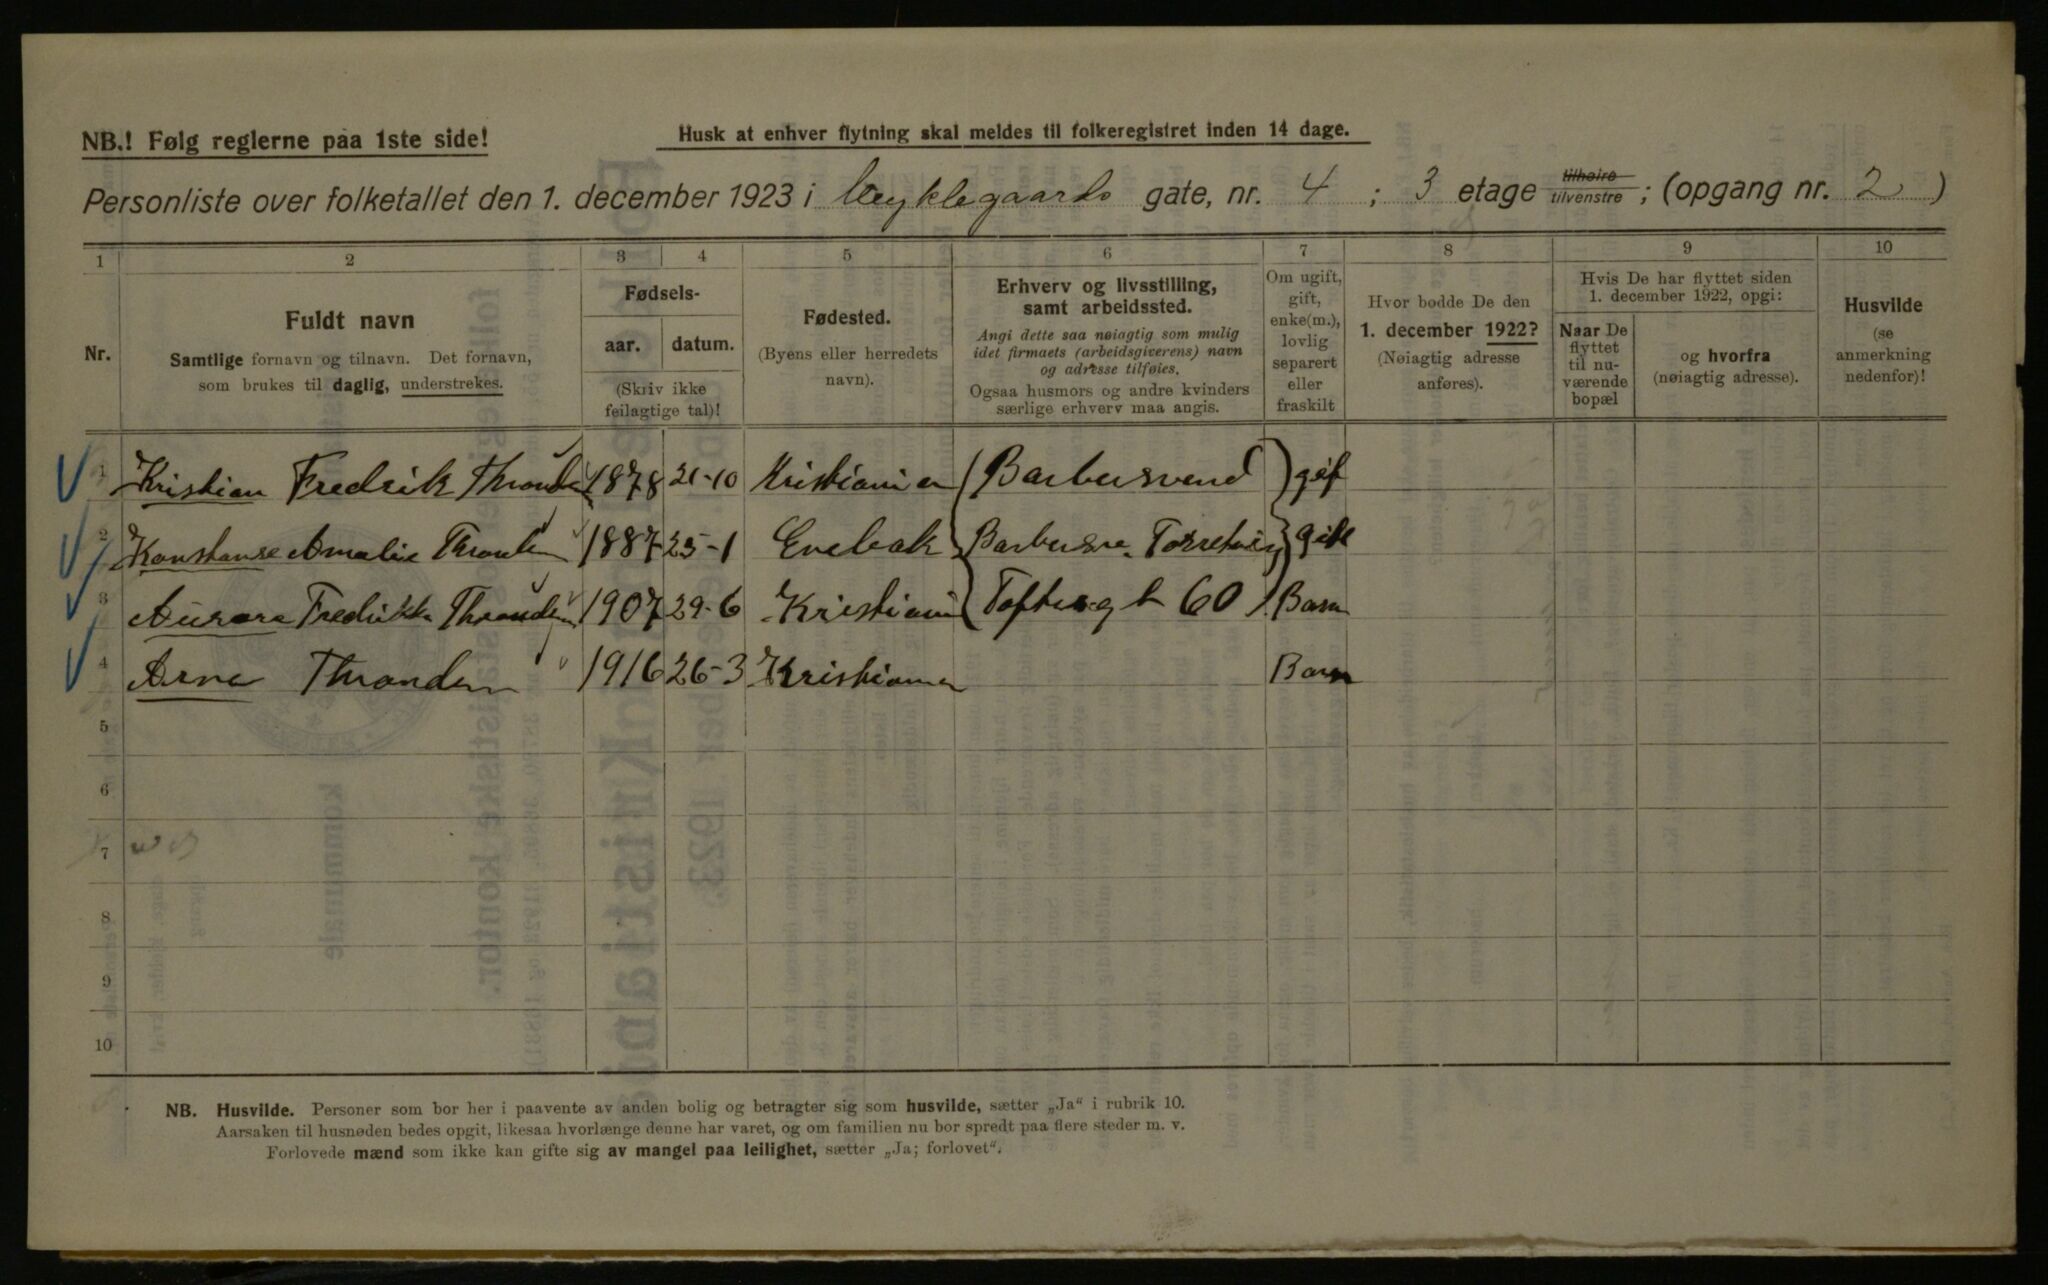 NB.! Følg reglerne paa 1ste side!
Husk at enhver flytning skal meldes til folkeregistret inden 14 dage.
Personliste over folketallet den 1. december 1923 i Nycklegaards gate, nr. 4 ; 3 etage tilhøire tilvenstre ; (opgang nr. 2 )
1 2 3 4 5 6 7 8 9 10
Nr.
Fuldt navn
Samtlige fornavn og tilnavn. Det fornavn,
som brukes til daglig, understrekes.
Fødsels-
aar. datum.
(Skriv ikke
feilagtige tal)!
Fødested.
(Byens eller herredets
navn).
Erhverv og livsstilling,
samt arbeidssted.
Angi dette saa nøiagtig som mulig
idet firmaets (arbeidsgiverens) navn
og adresse tilføies.
Ogsaa husmors og andre kvinders
særlige erhverv maa angis.
Om ugift,
gift,
enke(m.),
lovlig
separert
eller
fraskilt
Hvor bodde De den
1. december 1922?
(Nøiagtig adresse
anføres).
Hvis De har flyttet siden
1. december 1922, opgi:
Naar De
flyttet
til nu-
værende
bopæl
og hvorfra
(nøiagtig adresse).
Husvilde
(se
anmerkning
nedenfor)!
1 Kristian Fredrik Thronden 1878 21-10 Kristiania Barbersvend gif
2 Konstanse Amalie Thronden 1887 25-1 Enebak Gift
3 Aurora Fredrikke Thronden 1907 29-6 Kristiani Toftesgt 60 Barn
4 Arne Thronden 1916 26-3 Kristiania Barn
5
6
7
8
9
10
NB. Husvilde. Personer som bor her i paavente av anden bolig og betragter sig som husvilde, sætter „Ja“ i rubrik 10.
Aarsaken til husnøden bedes opgit, likesaa hvorlænge denne har varet, og om familien nu bor spredt paa flere steder m. v.
Forlovede mænd som ikke kan gifte sig av mangel paa leilighet, sætter „Ja; forlovet“.